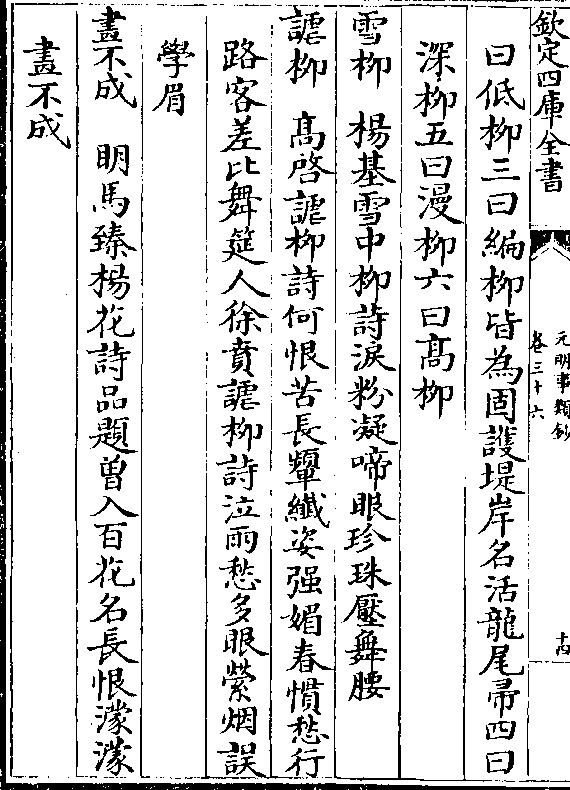 欽定四庫全書
元明事類鈔
卷三十六
十四
曰低柳三曰編柳皆為固護堤岸名活龍尾帚四曰
深柳五曰漫柳六曰髙柳
雪柳　楊基雪中柳詩淚粉凝啼眼珍珠壓舞腰
謔柳　髙啓謔柳詩何恨苦長顰纎姿强媚春慣愁行
路客差比舞筵人徐賁謔柳詩泣雨愁多眼縈烟誤
學眉
畫不成　明馬臻楊花詩品題曽入百花名長恨濛濛
畫不成